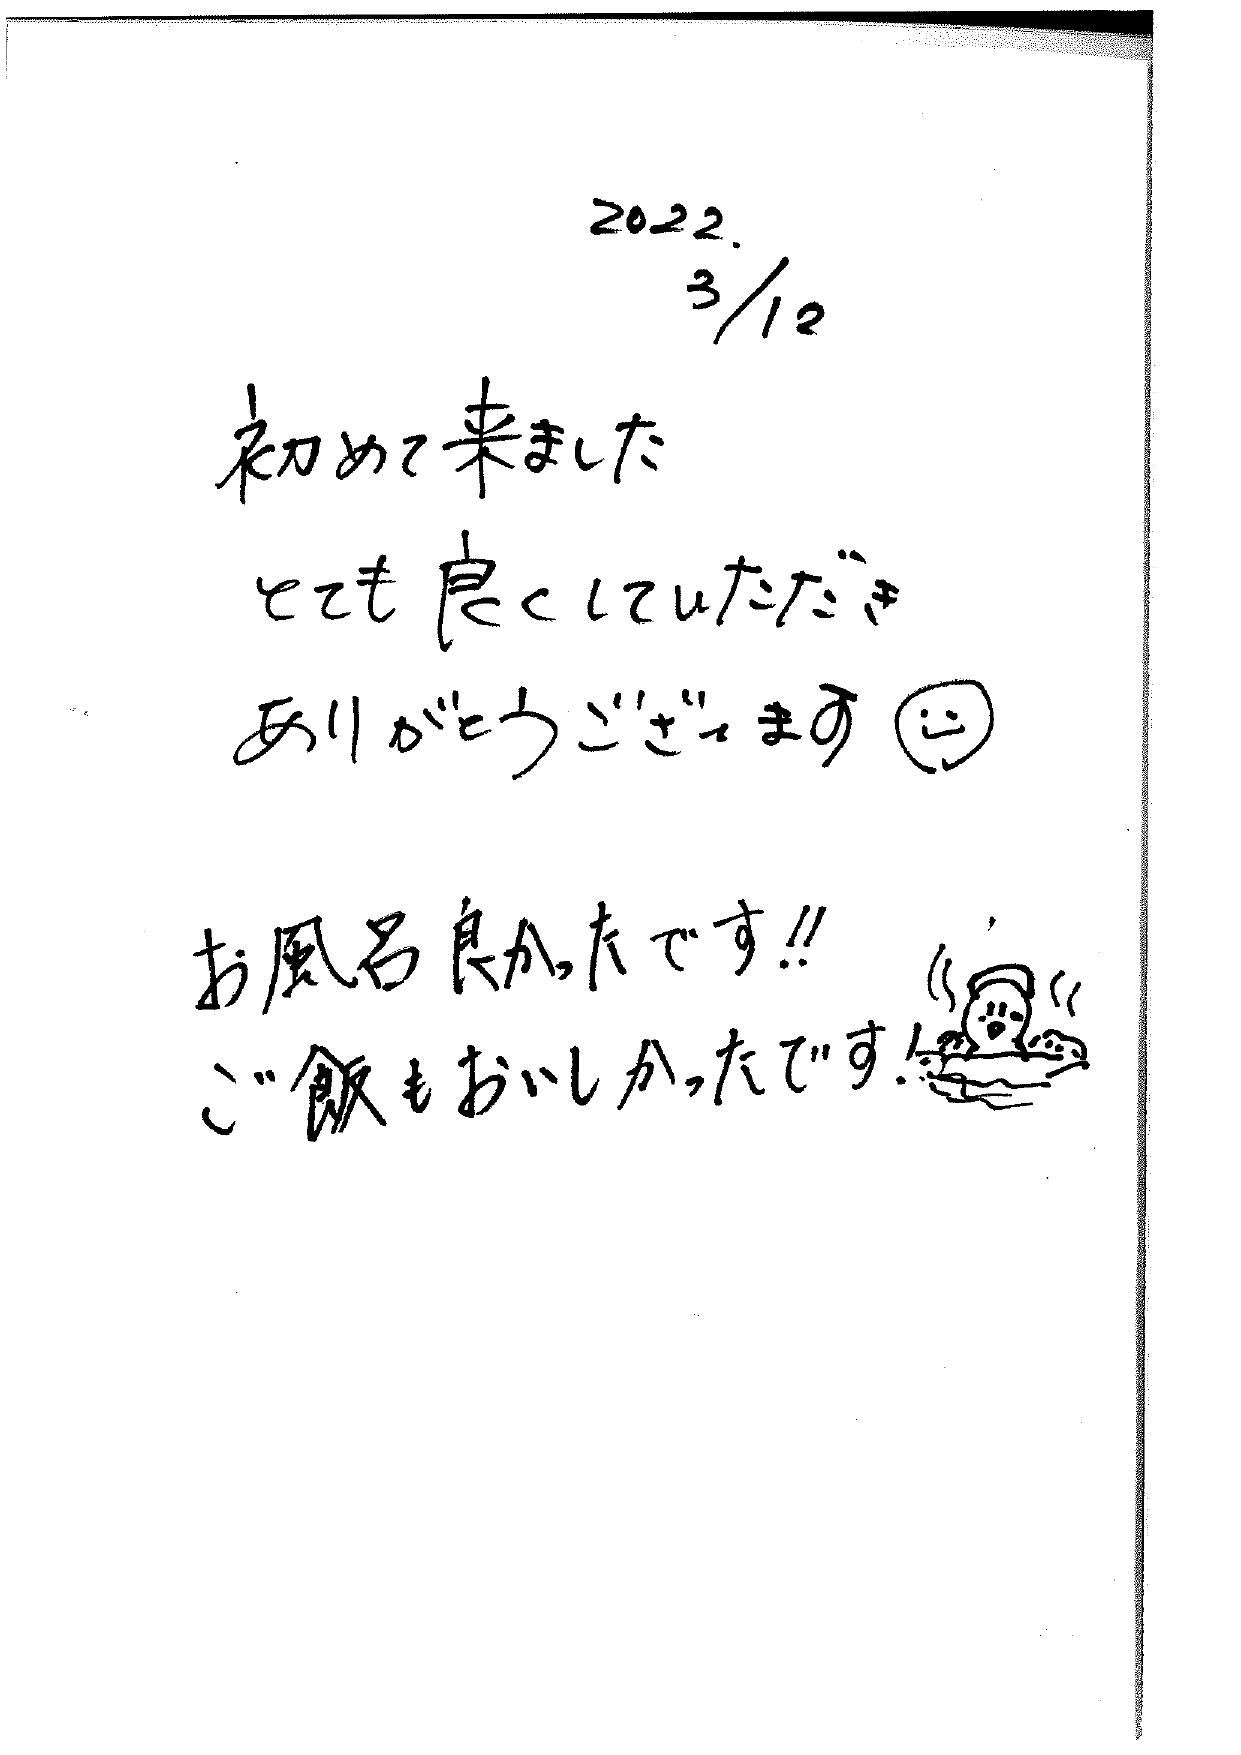 2022.
3/12
初めて来ました
とても良くしていただき
ありがとうございます
お風呂良かったです!!
ご飯もおいしかったです!